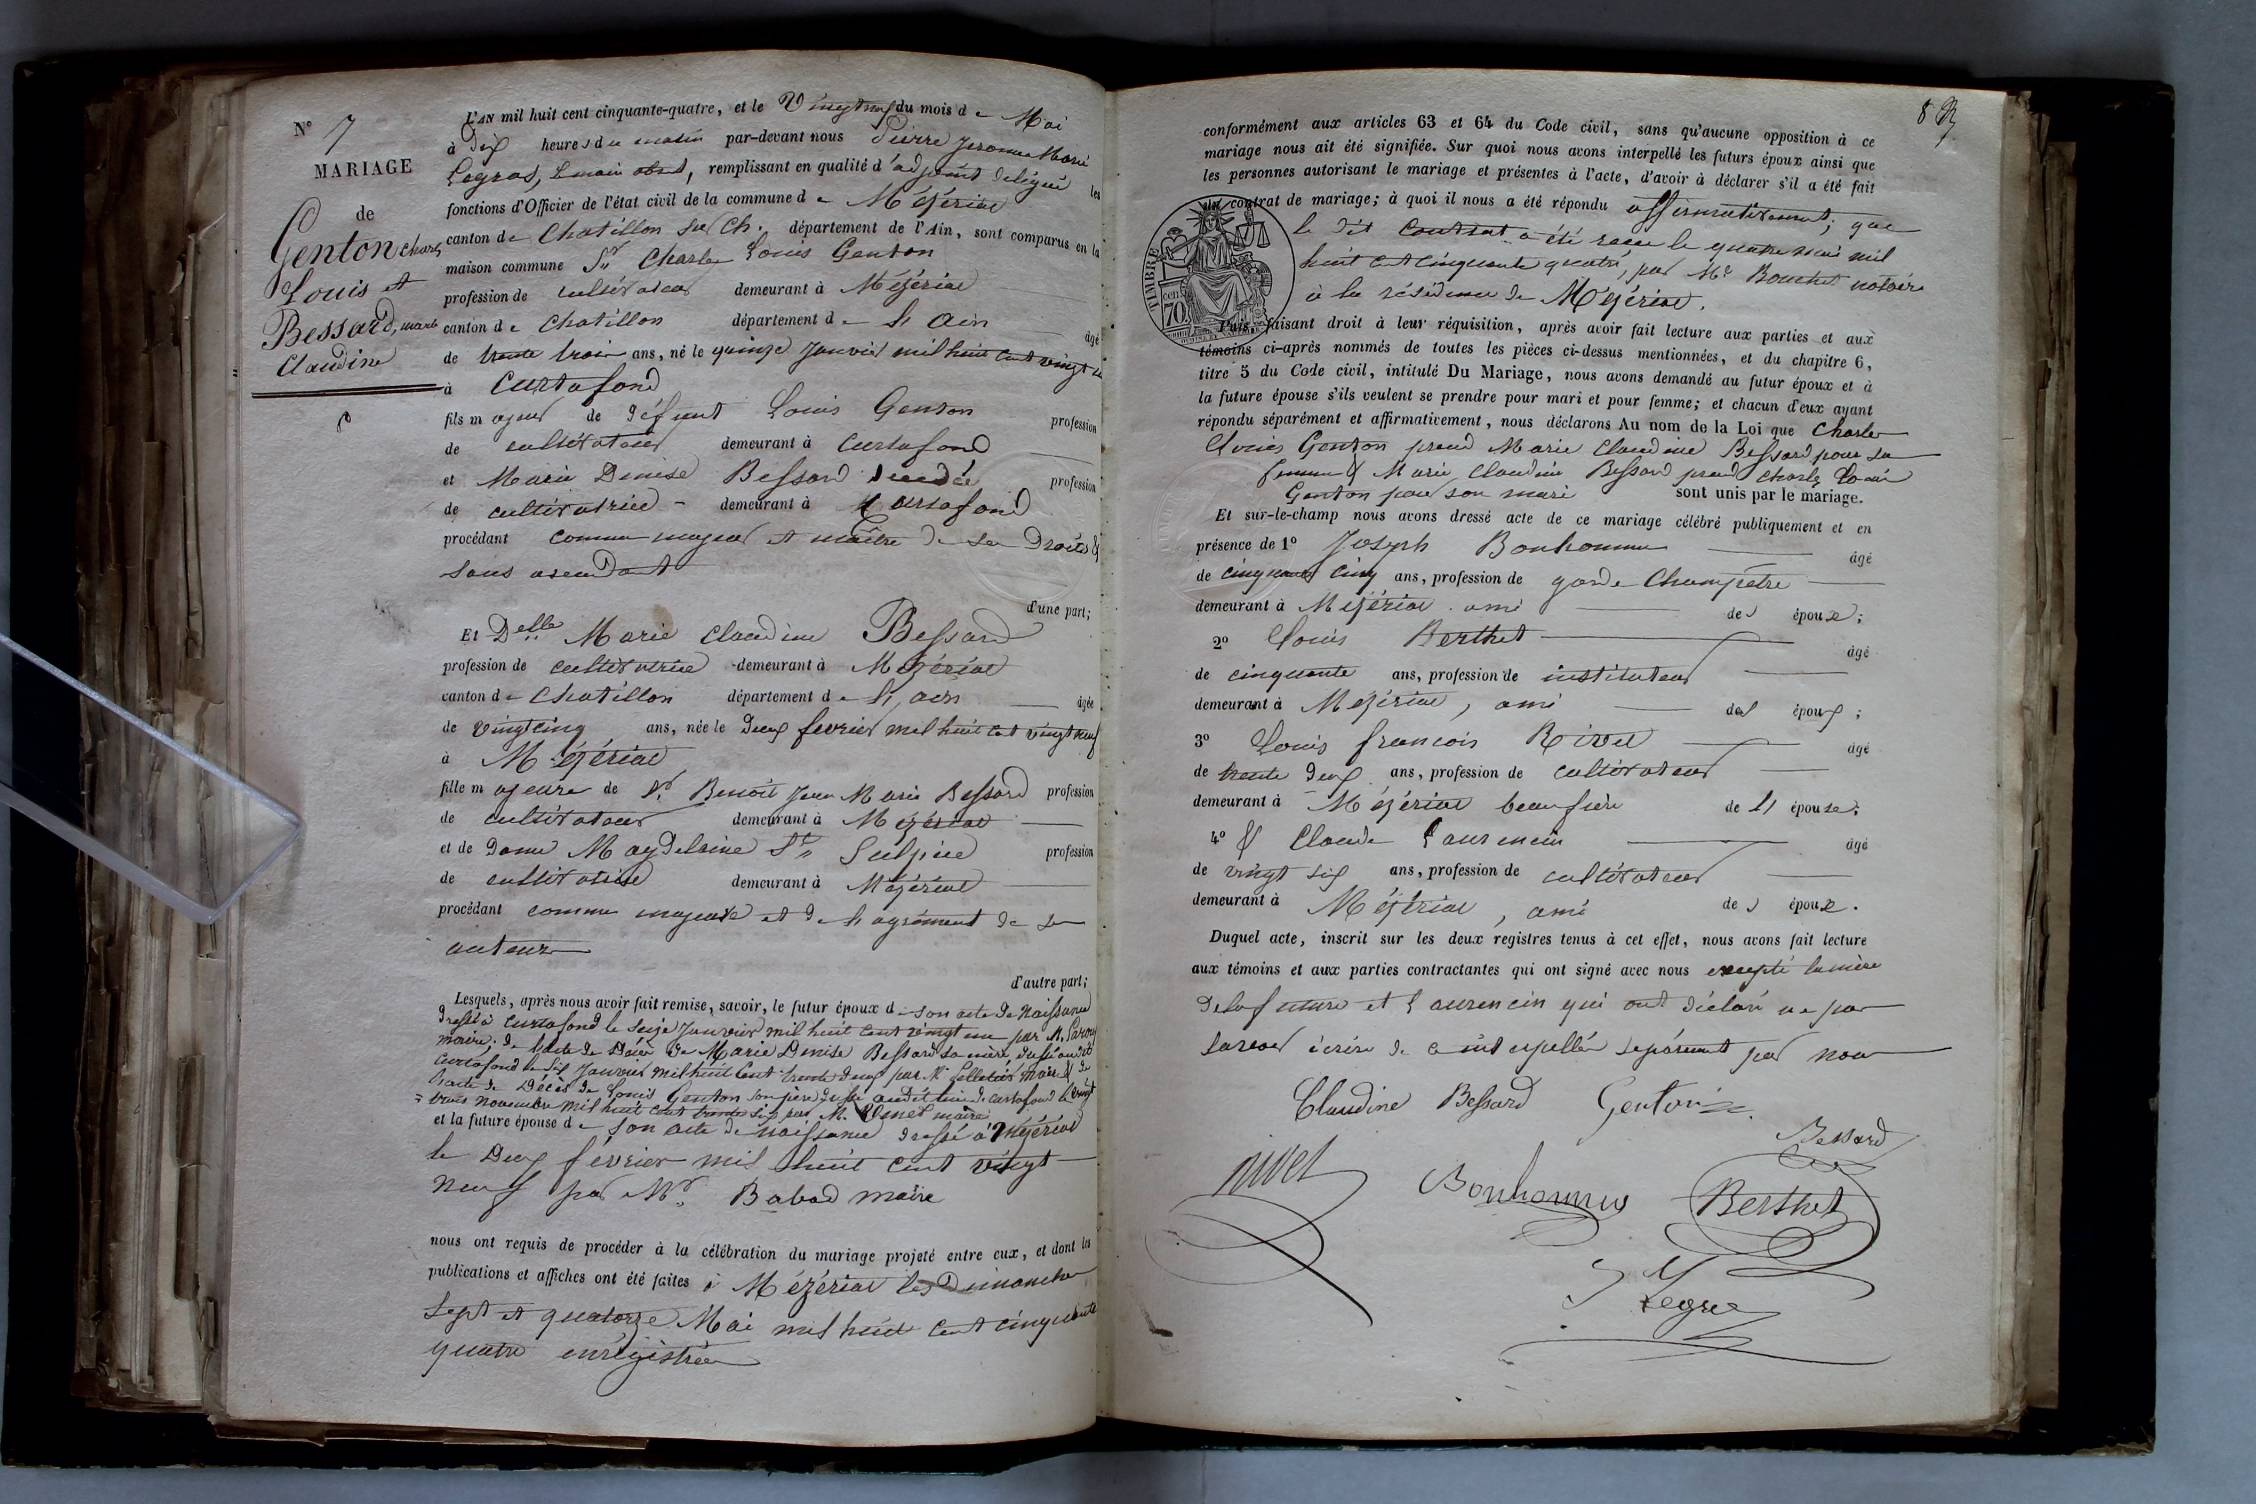 N° 7
MARIAGE
de
Genton Charles
Louis et
Bessard, marie
Claudine
L'AN mil huit cent cinquante-quatre, et le Vingt neuf du mois de Mai
à Dix heures du matin par-devant nous Pierre Jerome Marie
Legras, le maire absent, remplissant en qualité d'adjoint délégué les
fonctions d'Officier de l'état civil de la commune de Mézériat
canton de Chatillon sur Ch. département de l'Ain, sont comparus en la
maison commune Sr Charles Louis Genton
profession de cultivateur demeurant à Mézériat
canton de Chatillon département de l'ain âgé
de trente trois ans, né le quinze Janvier mil huit cent vingt un
à Curtafond
fils majeur de défunt Louis Genton profession
de cultivateur demeurant à Curtafond
et Marie Denise Bessard décédée profession
de cultivatrice demeurant à Curtafond
procédant comme majeur et maître de ses Droits &
sans ascendant
d'une part;
Et Delle Marie Claudine Bessard
profession de cultivatrice demeurant à Mézériat
canton de Chatillon département de l'ain âgée
de vingt cinq ans, née le Deux février mil huit cent vingt neuf
à Mézériat
fille majeure de Sr Benoit Jean Marie Bessard profession
de cultivateur demeurant à Mézériat
et de Dame Magdelaine St Sulpice profession
de cultivatrice demeurant à Mézériat
procédant comme majeure et de l'agrément de ses
auteurs
d'autre part;
Lesquels, après nous avoir fait remise, savoir, le futur époux de son acte de Naissance
dressé à Curtafond le seize Janvier mil huit cent vingt un par M.
maire; de l'acte de Décès de Marie Denise Bessard sa mère dressé audit
Curtafond le six Janvier mil huit cent trente deux par Mr Pelletier maire & de
l'acte de Décès de Louis Genton son père dressé audit lieu de Curtafond le vingt
trois novembre mil huit cent trente six par M. maire
et la future épouse de son acte de naissance dressé à Mézériat
le Deux février mil huit cent vingt
neuf par Mr Babad maire
nous ont requis de procéder à la célébration du mariage projeté entre eux, et dont les
publications et affiches ont été faites à Mézériat les Dimanches
sept et quatorze Mai mil huit cent cinquante
quatre enrégistrées
8
conformément aux articles 63 et 64 du Code civil, sans qu'aucune opposition à ce
mariage nous ait été signifiée. Sur quoi nous avons interpellé les futurs époux ainsi que
les personnes autorisant le mariage et présentes à l'acte, d'avoir à déclarer s'il a été fait
un contrat de mariage; à quoi il nous a été répondu affirmativement; que
le dit Contrat a été reçu le quatre mai mil
huit cent cinquante quatre, par Me Bouchet notaire
à la résidence de Mézériat.
TIMBRE
70 cen.
Puis, faisant droit à leur réquisition, après avoir fait lecture aux parties et aux
témoins ci-après nommés de toutes les pièces ci-dessus mentionnées, et du chapitre 6,
titre 5 du Code civil, intitulé Du Mariage, nous avons demandé au futur époux et à
la future épouse s'ils veulent se prendre pour mari et pour femme; et chacun d'eux ayant
répondu séparément et affirmativement, nous déclarons Au nom de la Loi que Charles
Louis Genton prend Marie Claudine Bessard pour sa
femme & Marie Claudine Bessard prend Charles Louis
Genton pour son mari sont unis par le mariage.
Et sur-le-champ nous avons dressé acte de ce mariage célébré publiquement et en
présence de 1° Joseph Bonhomme âgé
de cinquante cinq ans, profession de garde Champetre
demeurant à Mézériat ami des époux;
2° Louis Berthet âgé
de cinquante ans, profession de instituteur
demeurant à Mézériat, ami des époux;
3° Louis francois Nivet âgé
de trente Deux ans, profession de cultivateur
demeurant à Mézériat beaufrère de l'épouse;
4° & Claude Laurencin âgé
de vingt six ans, profession de cultivateur
demeurant à Mézériat, ami des époux.
Duquel acte, inscrit sur les deux registres tenus à cet effet, nous avons fait lecture
aux témoins et aux parties contractantes qui ont signé avec nous excepté la mère
de la future et Laurencin qui ont déclaré ne pas
savoir écrire de ce interpellés séparément par nous
Claudine Bessard Genton
Bessard
nivet Bonhomme Berthet
Legras